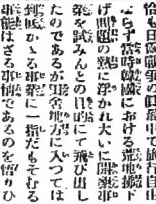 恰も日露戰爭の眞最中で旅行自由
ならず當時韓國における荒地拂下
げ問題の熱に浮かれ大いに開墾事
業を試みんとの目的にて飛び出し
たのであるが田舎地方に入つては
到底かゝる事業に一指だもそむる
事能はざる事情であるのを悟りひ